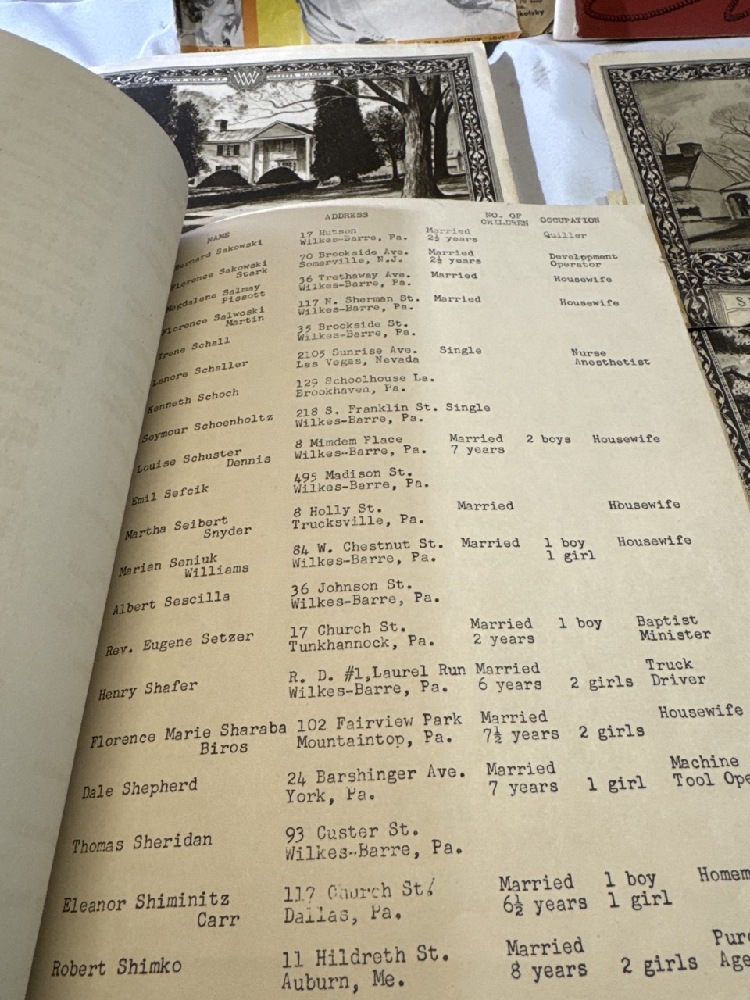 NAME ADDRESS NO. OF CHILDREN OCCUPATION
Bernard Sakowski 17 Hutson Married Quiller
Wilkes-Barre, Pa. 2½ years
Florence Sakowski 70 Brookside Ave. Married Development
Stark Somerville, N.J. 2½ years Operator
Magdalena Salmay 36 Trethaway Ave. Married Housewife
Pissott Wilkes-Barre, Pa.
Florence Salwoski 117 N. Sherman St. Married Housewife
Martin Wilkes-Barre, Pa.
Irene Schall 35 Brookside St.
Wilkes-Barre, Pa.
Lenore Schaller 2105 Sunrise Ave. Single Nurse
Las Vegas, Nevada Anesthetist
Kenneth Schoch 129 Schoolhouse La.
Brookhaven, Pa.
Seymour Schoenholtz 218 S. Franklin St. Single
Wilkes-Barre, Pa.
Louise Schuster 8 Mimdem Place Married 2 boys Housewife
Dennis Wilkes-Barre, Pa. 7 years
Emil Sefcik 495 Madison St.
Wilkes-Barre, Pa.
Martha Seibert 8 Holly St. Married Housewife
Snyder Trucksville, Pa.
Marian Seniuk 84 W. Chestnut St. Married 1 boy Housewife
Williams Wilkes-Barre, Pa. 1 girl
Albert Sescilla 36 Johnson St.
Wilkes-Barre, Pa.
Rev. Eugene Setzer 17 Church St. Married 1 boy Baptist
Tunkhannock, Pa. 2 years Minister
Henry Shafer R. D. #1,Laurel Run Married Truck
Wilkes-Barre, Pa. 6 years 2 girls Driver
Florence Marie Sharaba 102 Fairview Park Married Housewife
Biros Mountaintop, Pa. 7½ years 2 girls
Dale Shepherd 24 Barshinger Ave. Married Machine
York, Pa. 7 years 1 girl Tool Ope
Thomas Sheridan 93 Custer St.
Wilkes-Barre, Pa.
Eleanor Shiminitz 117 Church St. Married 1 boy Homem
Carr Dallas, Pa. 6½ years 1 girl
Robert Shimko 11 Hildreth St. Married Pur
Auburn, Me. 8 years 2 girls Age